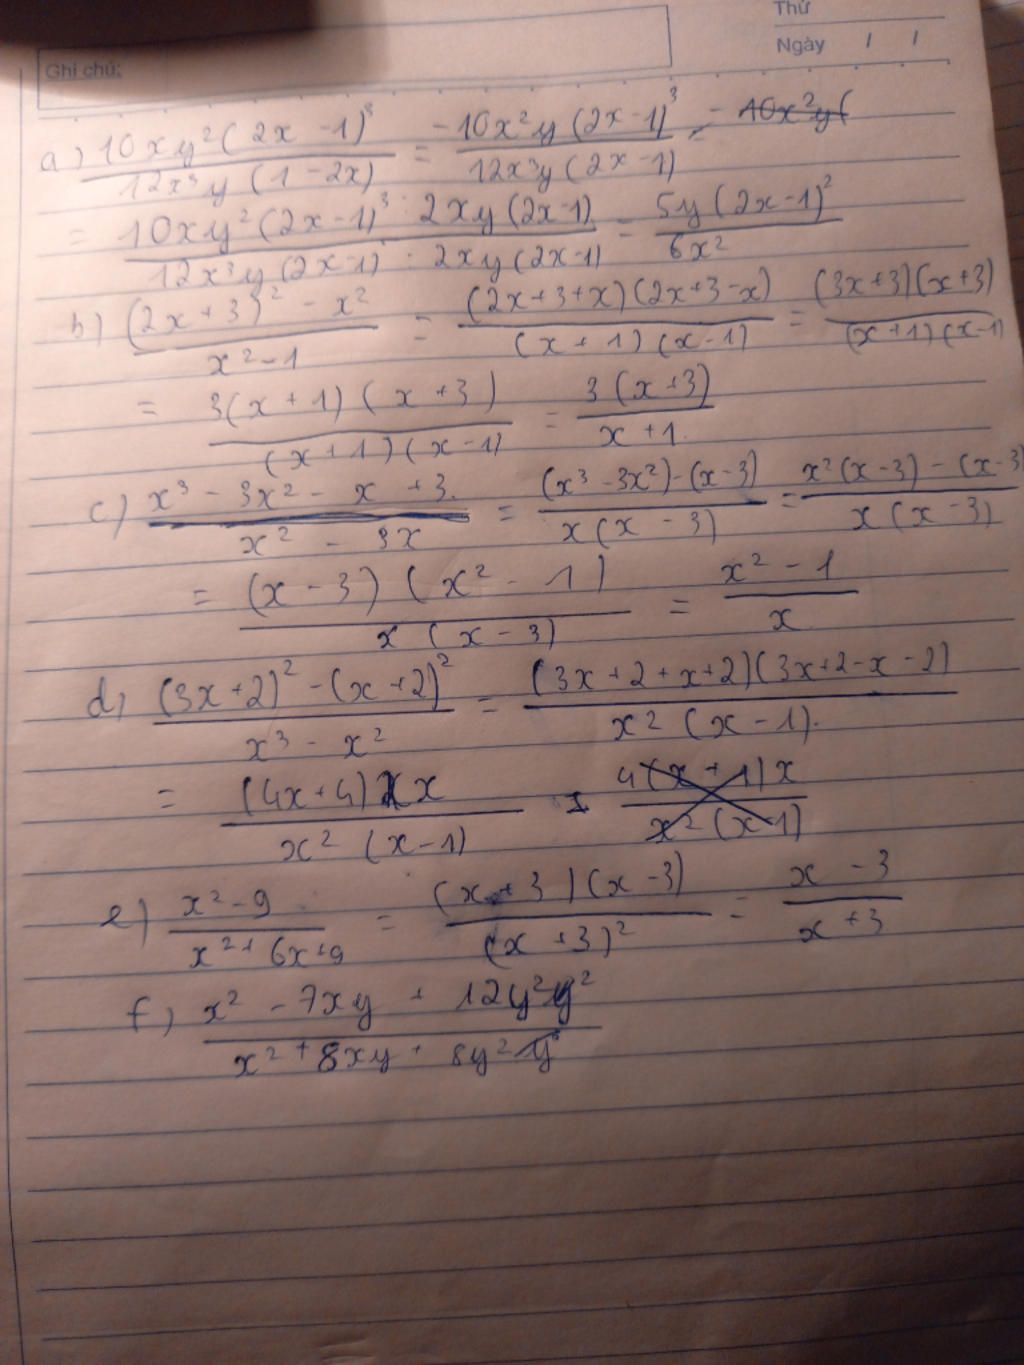 Thứ
Ngày / /
Ghi chú:
a) 10xy²(2x - 1)³ / 12x³y(1 - 2x) = -10x²y(2x - 1)³ / 12x³y(2x - 1) = 10x²y(
= 10xy²(2x - 1)³ : 2xy(2x - 1) / 12x³y(2x - 1) : 2xy(2x - 1) = 5y(2x - 1)² / 6x²
b) (2x + 3)² - x² / x² - 1 = (2x + 3 + x)(2x + 3 - x) / (x + 1)(x - 1) = (3x + 3)(x + 3) / (x + 1)(x - 1)
= 3(x + 1)(x + 3) / (x + 1)(x - 1) = 3(x + 3) / x + 1.
c) x³ - 3x² - x + 3. / x² - 3x = (x³ - 3x²) - (x - 3) / x(x - 3) = x²(x - 3) - (x - 3) / x(x - 3)
= (x - 3)(x² - 1) / x(x - 3) = x² - 1 / x
d) (3x + 2)² - (x + 2)² / x³ - x² = (3x + 2 + x + 2)(3x + 2 - x - 2) / x²(x - 1).
= (4x + 4)2x / x²(x - 1) = 4(x + 1)x / x²(x - 1)
e) x² - 9 / x² + 6x + 9 = (x + 3)(x - 3) / (x + 3)² = x - 3 / x + 3
f) x² - 7xy + 12y² / x² + 8xy + 8y²